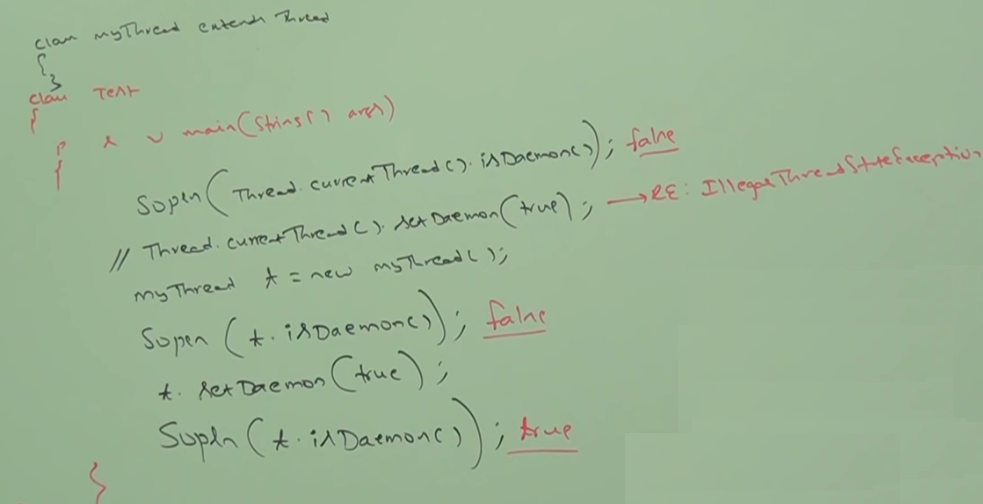 class myThread extends Thread
{
}
class Test
{
p s v main(String[] args)
{
Sopln(Thread.currentThread().isDaemon()); false
// Thread.currentThread().setDaemon(true); → RE: IllegalThreadStateException
myThread t = new myThread();
Sopln(t.isDaemon()); false
t.setDaemon(true);
Sopln(t.isDaemon()); true
}